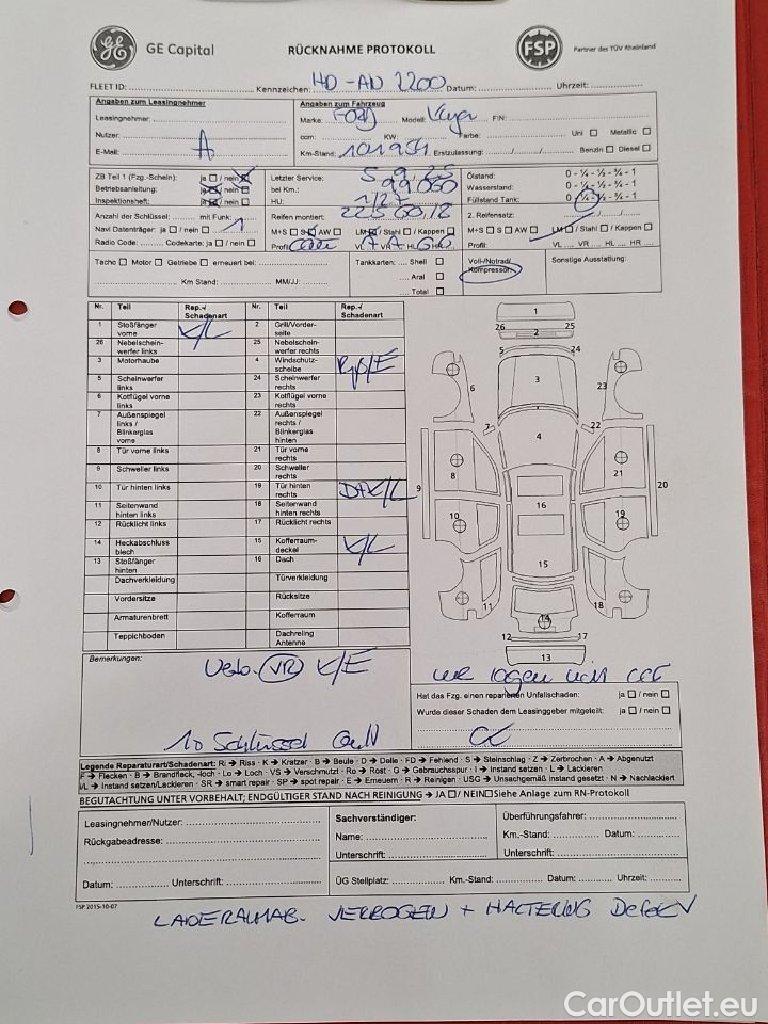 GE Capital
RÜCKNAHME PROTOKOLL
FSP
Partner des TÜV Rheinland
FLEET ID: Kennzeichen: HD-AN 2200 Datum: Uhrzeit:
Angaben zum Leasingnehmer
Leasingnehmer:
Nutzer: A
E-Mail:
Angaben zum Fahrzeug
Marke: FORD Modell: FIN:
ccm: KW: Farbe: Uni Metallic
Km-Stand: 101951 Erstzulassung: Benzin Diesel
ZB Teil 1 (Fzg.-Schein): ja / nein
Betriebsanleitung: ja / nein
Inspektionsheft: ja / nein
Anzahl der Schlüssel: mit Funk: 1
Navi Datenträger: ja / nein
Radio Code: Codekarte: ja / nein
Letzter Service: 5.9.25
bei Km.: 99000
HU: 1/27
Reifen montiert: 225.60.18
M+S S AW LM / Stahl / Kappen
Profil VL VR HL HR
Ölstand: 0 - ¼ - ½ - ¾ - 1
Wasserstand: 0 - ¼ - ½ - ¾ - 1
Füllstand Tank: 0 - ¼ - ½ - ¾ - 1
2. Reifensatz:
M+S S AW LM / Stahl / Kappen
Profil: VL VR HL HR
Tacho Motor Getriebe erneuert bei:
Km Stand: MM/JJ:
Tankkarten: Shell
Aral
Total
Voll-/Notrad/
Kompressor
Sonstige Ausstattung:
Nr. Teil Rep.-/ Schadenart Nr. Teil Rep.-/ Schadenart
1 Stoßfänger vorne K/L 2 Grill/Vorderseite
26 Nebelscheinwerfer links 25 Nebelscheinwerfer rechts
3 Motorhaube 4 Windschutzscheibe
5 Scheinwerfer links 24 Scheinwerfer rechts
6 Kotflügel vorne links 23 Kotflügel vorne rechts
7 Außenspiegel links / Blinkerglas vorne 22 Außenspiegel rechts / Blinkerglas hinten
8 Tür vorne links 21 Tür vorne rechts
9 Schweller links 20 Schweller rechts
10 Tür hinten links 19 Tür hinten rechts
11 Seitenwand hinten links 18 Seitenwand hinten rechts
12 Rücklicht links 17 Rücklicht rechts
14 Heckabschlussblech 15 Kofferraumdeckel K/L
13 Stoßfänger hinten 16 Dach
Dachverkleidung Türverkleidung
Vordersitze Rücksitze
Armaturenbrett Kofferraum
Teppichboden Dachreling Antenne
1
26 2 25
5 24
6 3 23
7 22
4
8 21
9 20
16
10 19
15
11 18
14
12 17
13
Bemerkungen:
VR K/E
10 Schlüssel
Hat das Fzg. einen reparierten Unfallschaden: ja / nein
Wurde dieser Schaden dem Leasinggeber mitgeteilt: ja / nein
Legende Reparaturart/Schadenart: Ri → Riss - K → Kratzer - B → Beule - D → Delle - FD → Fehlend - S → Steinschlag - Z → Zerbrochen - A → Abgenutzt
F → Flecken - B → Brandfleck, -loch - Lo → Loch - VS → Verschmutzt - Ro → Rost - G → Gebrauchsspur - I → Instand setzen - L → Lackieren
I/L → Instand setzen/Lackieren - SR → smart repair - SP → spot repair - E → Erneuern - R → Reinigen - USG → Unsachgemäß instand gesetzt - N → Nachlackiert
BEGUTACHTUNG UNTER VORBEHALT; ENDGÜLTIGER STAND NACH REINIGUNG → JA / NEIN Siehe Anlage zum RN-Protokoll
Leasingnehmer/Nutzer:
Rückgabeadresse:
Datum: Unterschrift:
Sachverständiger:
Name:
Unterschrift:
Überführungsfahrer:
Km.-Stand: Datum:
Unterschrift:
ÜG Stellplatz: Km.-Stand: Datum: Uhrzeit:
FSP 2015-10-07
VERBOGEN + HALTERUNG DEFEKT
CarOutlet.eu